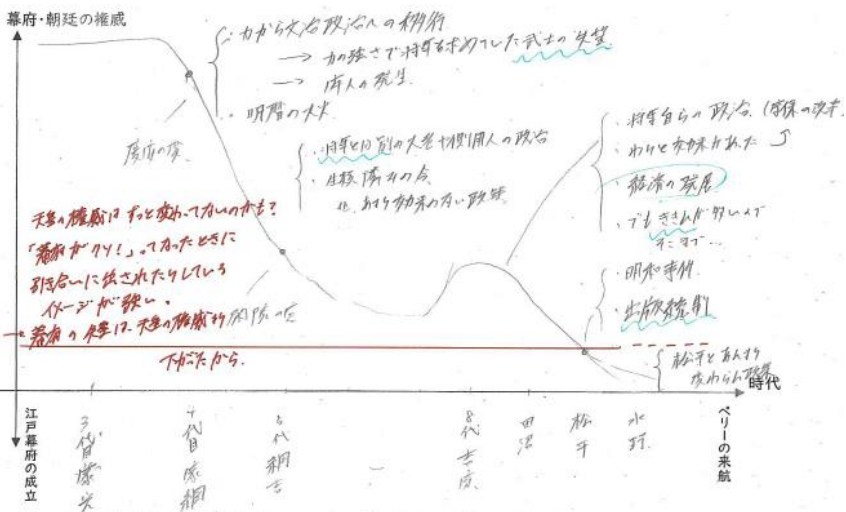 幕府・朝廷の権威
・力から文治政治への移行
→ 力の強さで将軍を求めていた武士の失望
→ 牢人の発生
・明暦の大火
慶安の変
・将軍とは別の大老や側用人の政治
・生類憐みの令
あまり効果のない政策
・将軍自らの政治
・わりと効果があった
・経済の発展
・でもききんが多いので
そこまで…
・明和事件
・出版統制
松平とあんまり
変わらん政策
天皇の権威はずっと変わってないのかも?
「幕府がクソ!」ってなったときに
引き合いに出されたりしている
イメージが強い。
→幕府の失墜は、天皇の権威より
下がったから。
時代
江戸幕府の成立
3代目家光
4代目家綱
5代綱吉
8代吉宗
田沼
松平
水野
ペリーの来航